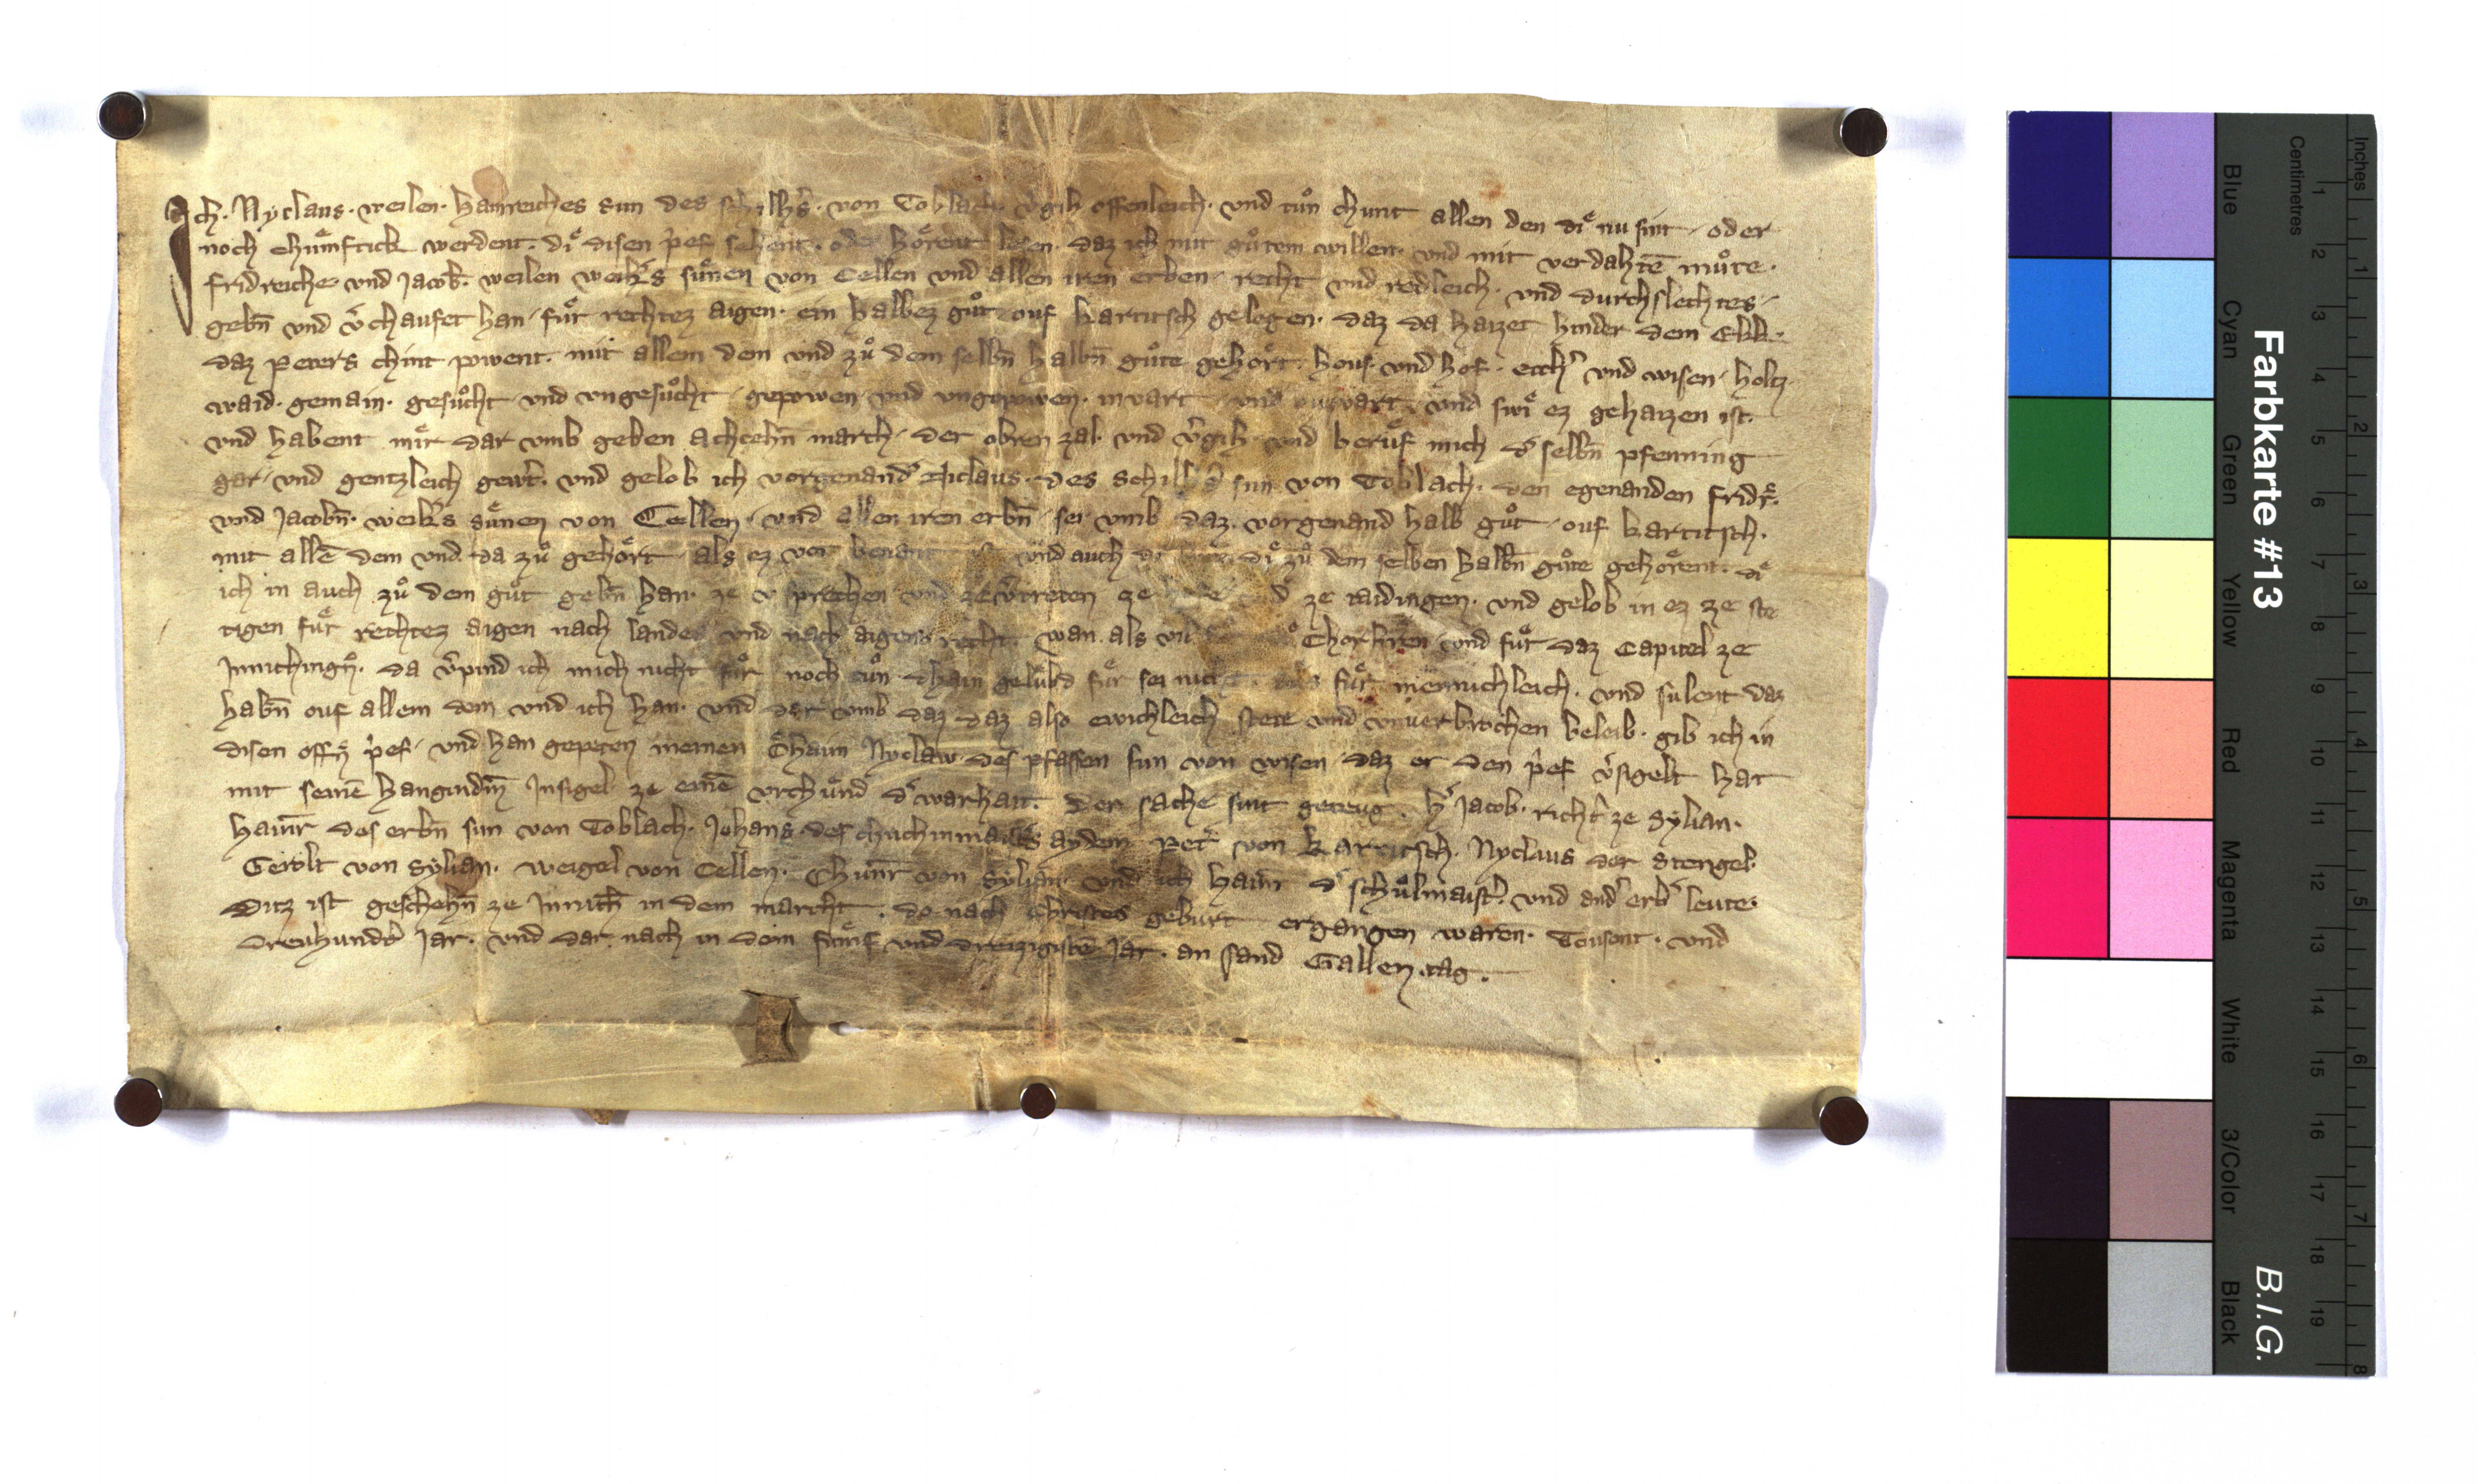 Ich. Nyclaus. weilen. hainreiches sun des schilhs. von Toblach. vgih offenleich. vnd tuͦn chunt allen den diͤ nu sint. oder
noch chuͤmftick werdent. diͤ disen pͥef sehent. oder hoͤrent lesen. daz ich mit guͦtem willen. vnd mit verdahtē muͦte.
fridreiche vnd Jacob. weilen weiks suͤnen von Cellen vnd allen iren erben. recht vnd redleich. vnd durchslechtes.
gebn̄ vnd v̓chaufet han. fuͤr rechtez aigen. ein halbez guͦt ouf kartitsch gelegen. daz da haizet hinder dem Ekk.
daz Peters chint powent. mit allem dem vnd zuͦ dem selbn̄ halbn̄ guͦte gehoͤrt. hous vnd hof. ecch̓ vnd wisen. holtz.
waid. gemain. gesuͦcht. vnd vngesuͦcht. gepowen. vnd vngepowen. invart vnd ouzvart. vnd swiͤ ez gehaizen ist.
vnd habent miͤr dar vmb geben achtehn̄ march. der obren zal. vnd v̓gih vnd beruͤf mich d̓ selbn̄ pfenning
gar. vnd gentzleich gew̓t. vnd gelob ich vorgenand̓ Niclaus. des schilh̓s sun von Toblach. den egenanden fridr̄.
vnd Jacobn̄. weiks suͤnen von Cellen. vnd allen iren erbn̄. sei vmb daz. vorgenand halb guͦt. ouf kartitsch.
mit allē dem vnd. da zuͦ gehoͤrt. als ez vor benant ist vnd auch diͤ diͤ zuͦ dem selben halbn̄ guͦte gehoͤrent. diͤ
ich in auch zuͦ dem guͦt gebn̄ han. ze v̓sprechen vnd ze v̓treten ze ze taidingen. vnd gelob in ez ze ste
tigen fuͤr rechtez aigen nach landes vnd nach aigens recht. wan. als vil Chorh̓ren vnd fuͤr daz Capitel ze
Innichingn̄. da v̓pind ich mich nicht fuͤr noch tuͦn dhain geluͤbd fuͤr sei nicht. fuͤr mennichleich. vnd sulent daz
habn̄ ouf allem dem vnd ich han. vnd dar vmb daz daz also ewichleich stete vnd vnuerbrochen beleib. gib ich in
disen offn̄ pͥef. vnd han gepeten meinen Oͤhaim Nyclaw. des pfaffen sun von wisen daz er den pͥef v̓sigelt hat
mit seinē hangundm̄ Insigel ze einē vrchuͤnd d̓ warhait. Der sache sint gezeug. h̓ Jacob. richt̓ ze Sylian.
hainr̄ des erbn̄ sun von Toblach. Johans des chuchinmaist̓s aydem. Pet̓ von kartitsch. Nyclaus der Stengel.
Gerolt von Sylian. weigel von Cellen. Chunr̄ von Sylian. vnd ich hainr̄ d̓ schuͦlmaist̓. vnd and̓ erb̓ leute.
Ditz ist geschehn̄ ze Innich̄ in dem marcht. do nach Christes geburt ergangen waren. Tousent. vnd
dreuhund̓t Jar. vnd dar nach in dem fuͤnf vnd dreizigistē Jar. an sand Gallen tag.
Farbkarte #13
B.I.G.
Blue Cyan Green Yellow Red Magenta White 3/Color Black
Centimetres
1 2 3 4 5 6 7 8 9 10 11 12 13 14 15 16 17 18 19
Inches
1 2 3 4 5 6 7 8